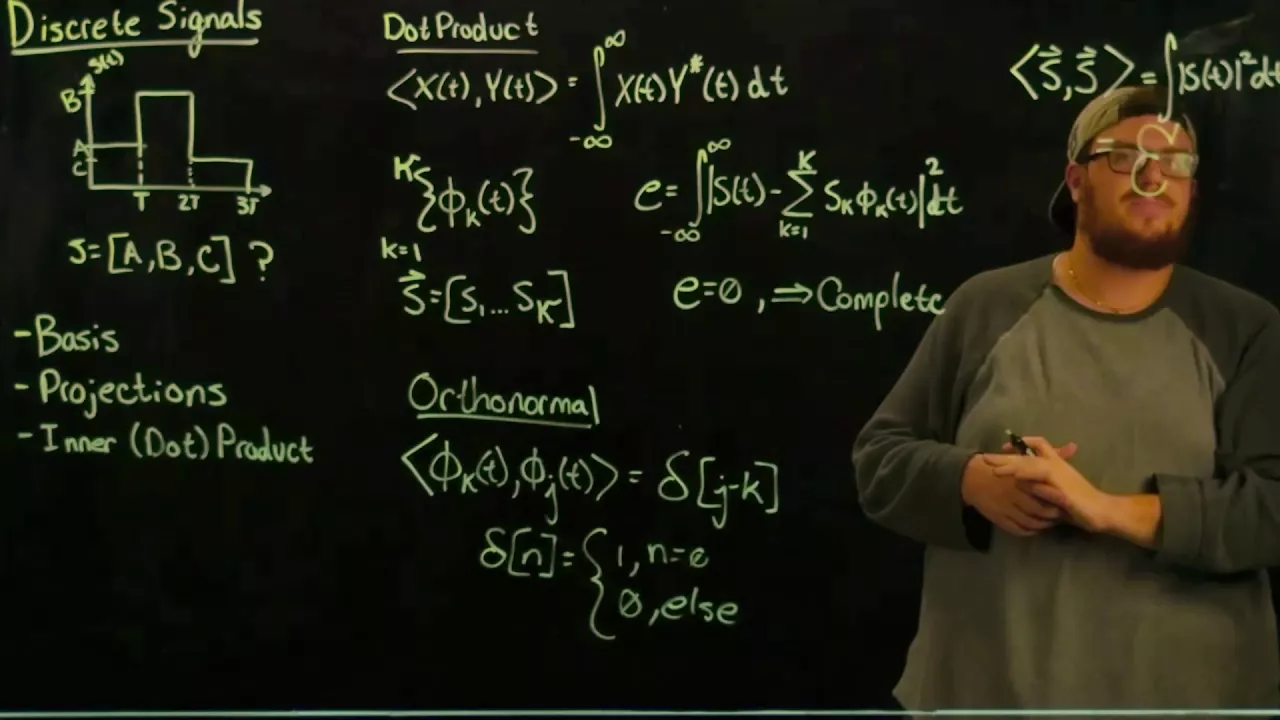 Discrete Signals
s(t)
B
A
C
T 2T 3T
S=[A,B,C] ?
-Basis
- Projections
- Inner (Dot) Product
Dot Product
⟨X(t),Y(t)⟩ = ∫_{-∞}^{∞} X(t)Y*(t) dt
{ϕ_k(t)}_{k=1}^{K}
S⃗=[S₁...S_K]
e=∫_{-∞}^{∞}|S(t)-∑_{k=1}^{K} S_kϕ_k(t)|²dt
e=0, ⇒Complete
Orthonormal
⟨ϕ_k(t),ϕ_j(t)⟩ = δ[j-k]
δ[n]={1, n=0
0, else
⟨S⃗,S⃗⟩=∫|S(t)|²dt
= E